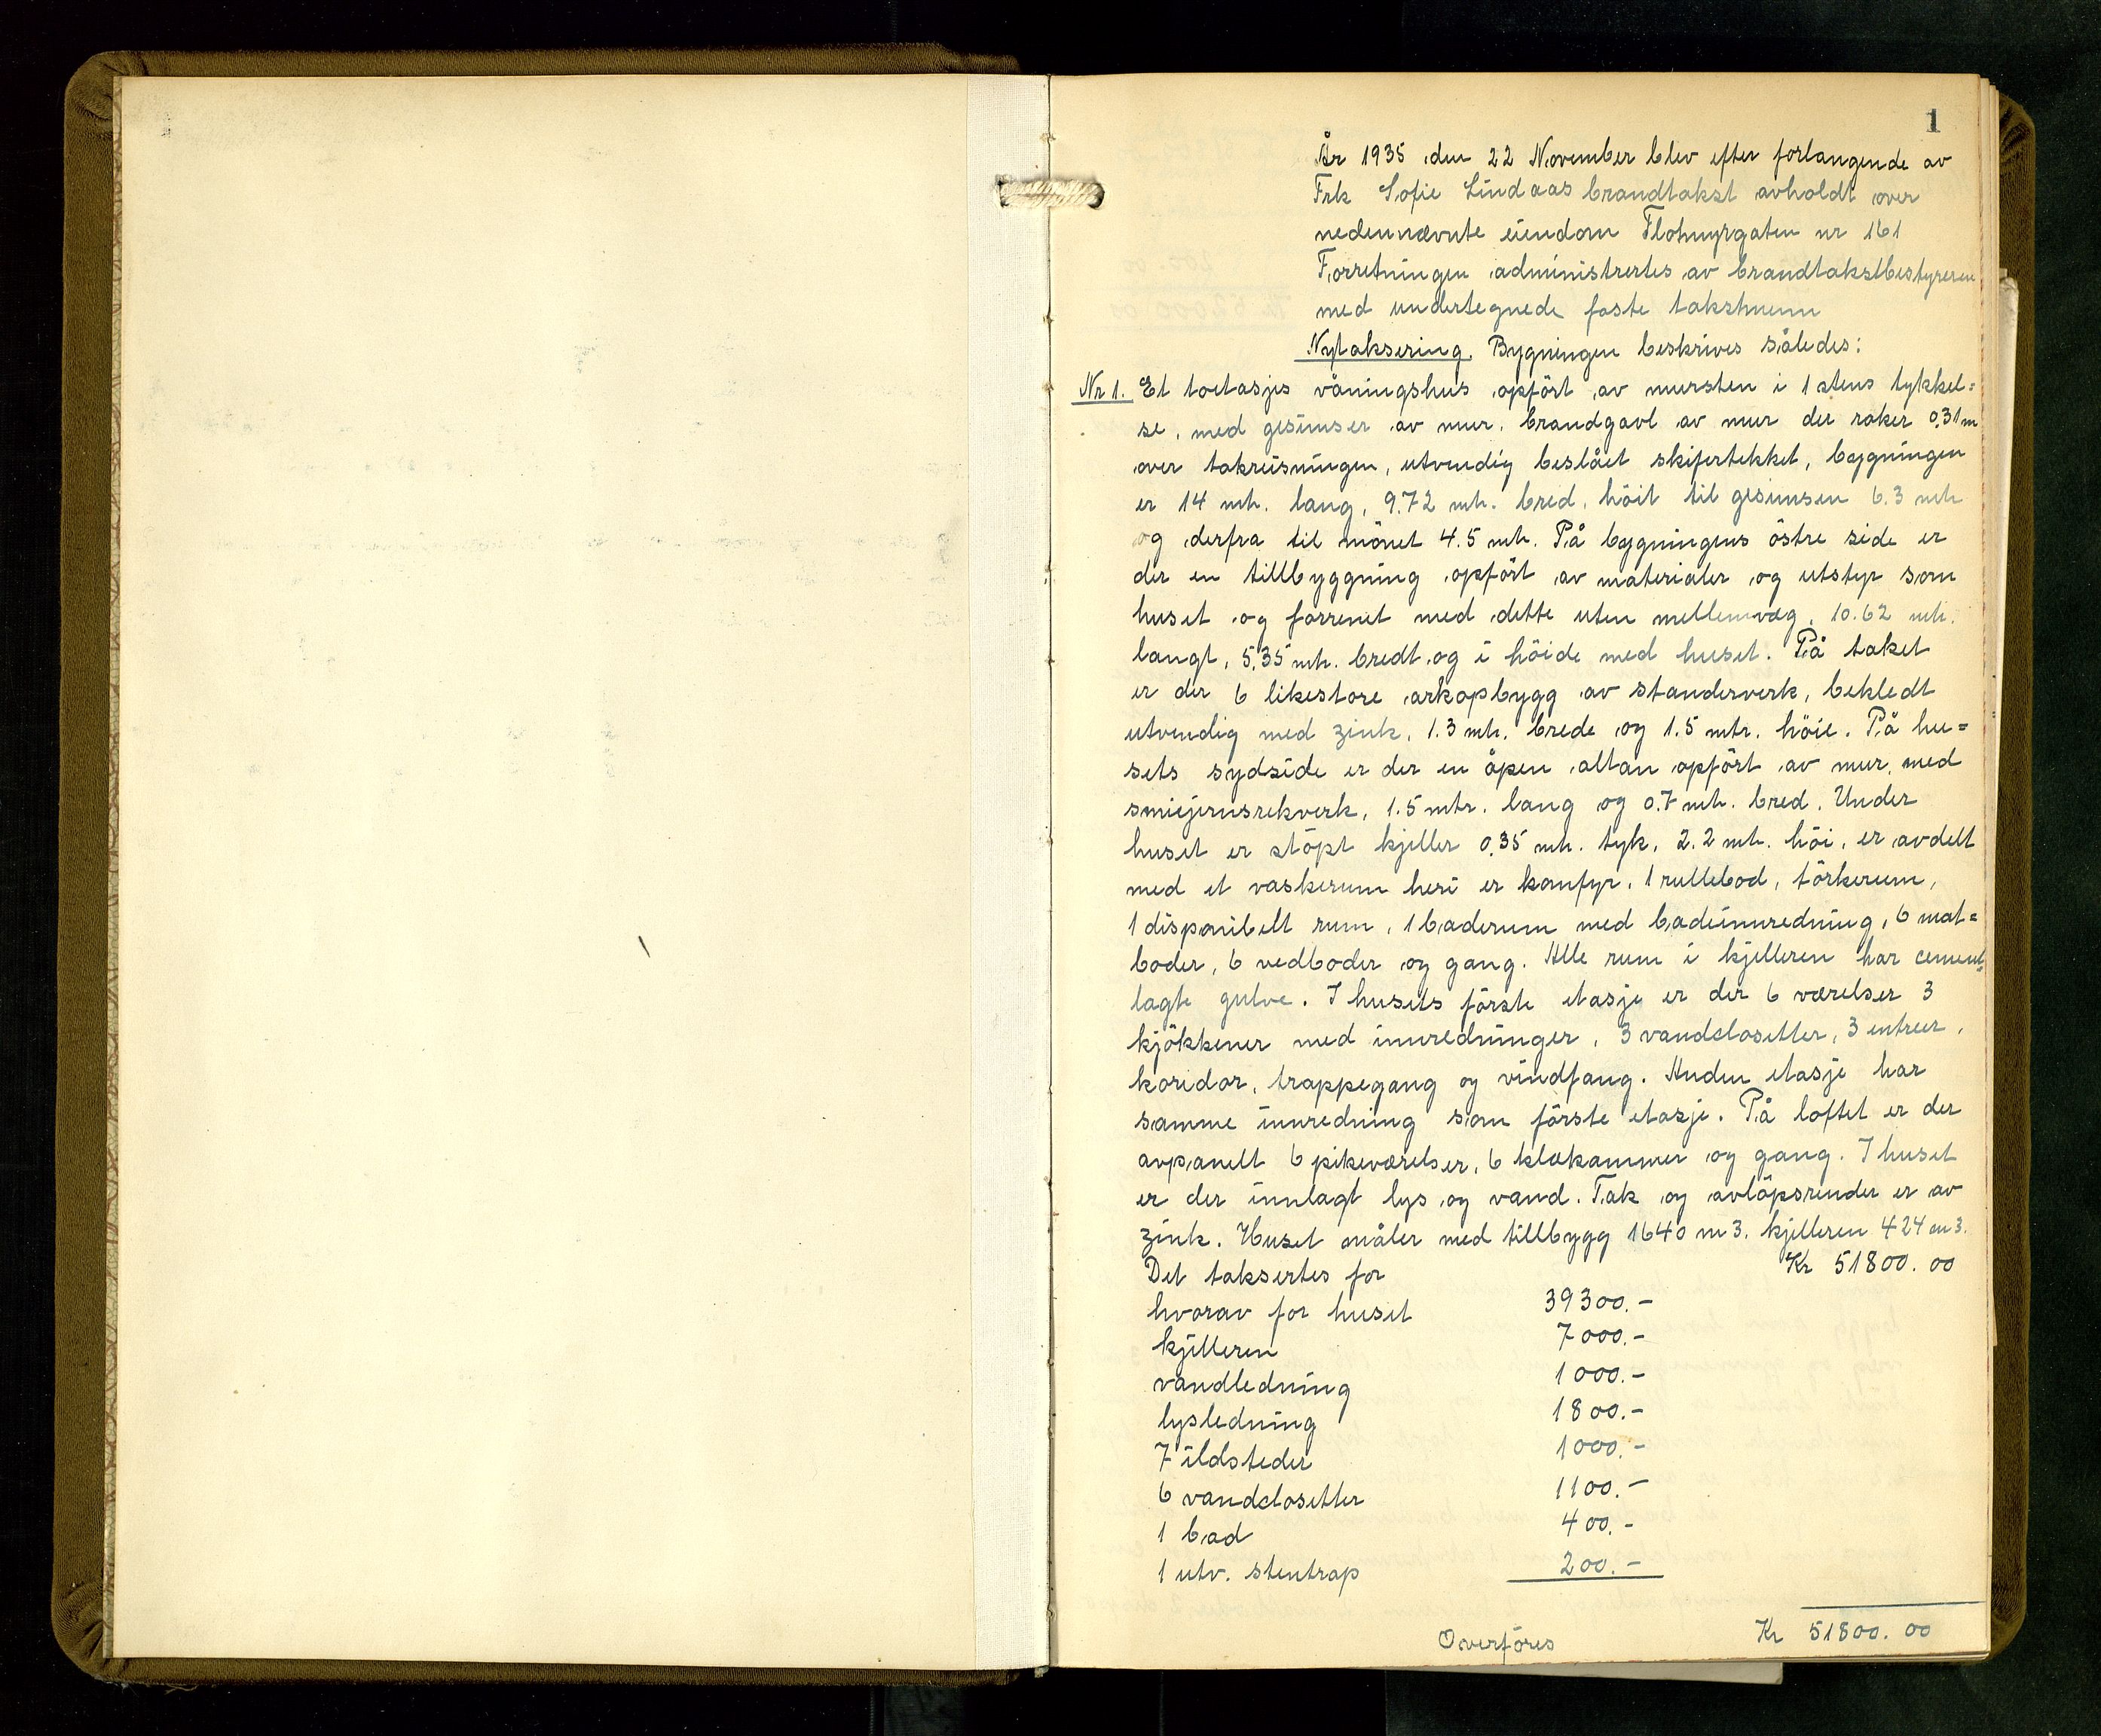 1
År 1935 den 22 November blev efter forlangende av
Frk Sofie Lindaas brandtakst avholdt over
nedennævnte eiendom Flotmyrgaten nr 161
Forretningen administrertes av brandtakstbestyreren
med undertegnede faste takstmenn
Nytaksering. Bygningen beskrives således:
Nr 1. Et toetasjes våningshus opfört av mursten i 1 stens tykkel=
se, med gesimser av mur, brandgavl av mur der raker 0,31 m
over takreisningen, utvendig beslået skifertekket, bygningen
er 14 mtr. lang, 9.72 mtr. bred, höit til gesimsen 6.3 mtr
og derfra til mönet 4.5 mtr. På bygningens östre side er
der en tillbyggning opfört av materialer og utstyr som
huset og forrenet med dette uten mellemvæg, 10.62 mtr.
langt, 5,35 mtr. bredt og i höide med huset. På taket
er der 6 likestore arkopbygg av standerverk, bekledt
utvendig med zink, 1.3 mtr. brede og 1.5 mtr. höie. På hu=
sets sydside er der en åpen altan opfört av mur, med
smiejernsrekverk, 1.5 mtr. lang og 0.7 mtr. bred. Under
huset er stöpt kjeller 0,35 mtr. tyk, 2.2 mtr. höi, er avdelt
med et vaskerum heri er komfyr, 1 rullebod, törkerum,
1 disponibelt rum, 1 baderum med badeinnredning, 6 mat=
boder, 6 vedboder og gang. Alle rum i kjelleren har cement=
lagte gulve. I husets förste etasje er der 6 værelser 3
kjökkener med innredninger, 3 vandclosetter, 3 entreer,
koridor, trappegang og vindfang. Anden etasje har
samme innredning som förste etasje. På loftet er der
avpanelt 6 pikeværelser, 6 klækammer og gang. I huset
er der innlagt lys og vand. Tak og avlöpsrender er av
zink. Huset måler med tillbygg 1640 m3. kjelleren 424 m3.
Det taksertes for Kr 51800.00
hvorav for huset 39300.-
kjelleren 7000.-
vandledning 1000.-
lysledning 1800.-
7 ildsteder 1000.-
6 vandclosetter 1100.-
1 bad 400.-
1 utv. stentrap 200.-
Overföres Kr 51800.00